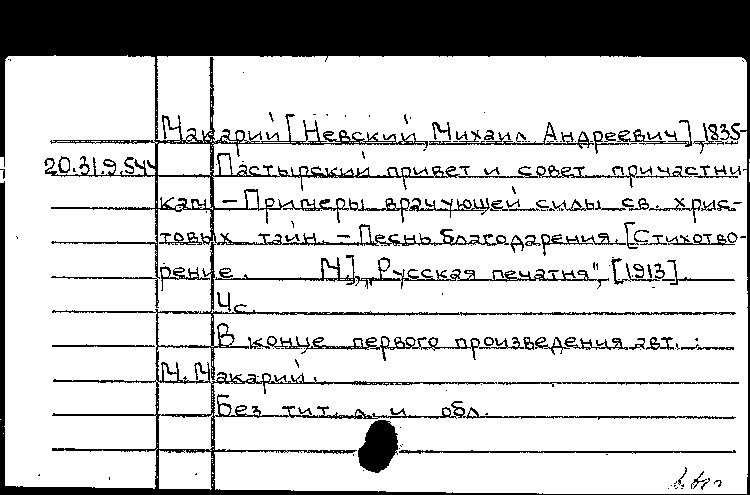 Макарий [Невский, Михаил Андреевич], 1835-
20.31.9.544 Пастырский привет и совет причастни-
кам – Примеры врачующей силы св. хрис-
товых тайн. – Песнь благодарения. [Стихотво-
рение. М.], „Русская печатня", [1913].
4с.
В конце первого произведения авт. :
М. Макарий.
Без тит. л. и обл.